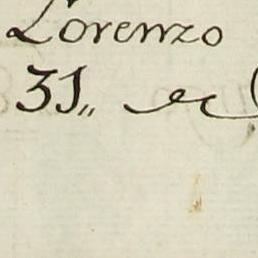 Lorenzo
31,, de